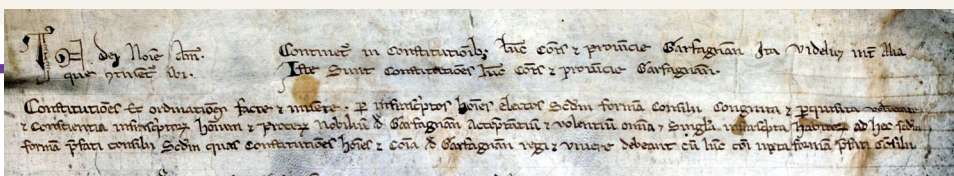 In dei Noīe Am̄. Continet̄ in Constitutionib; Luc̄ Com̄s ⁊ provincie Garfagnañ Ita videlic̄ int̄ Alia
que ɔtinet̄ ibi. Iste Sunt Constitutões Luc̄ Com̄s ⁊ provincie Garfagnañ.
Constitutões Et ordinatiões facte ⁊ ꝑ infrascriptos hoīes electos Scdm̄ formā Consilii ⁊
⁊ Conscientia infrascriptoꝝ hoīum ⁊ Nobiliū d̄ Garfagnañ Acceptātiū ⁊ volentiū om̄ia ⁊ Singl̄a infrascripta ad hec
formā p̄fati consilii Scdm̄ quas Constitutões hoīes ⁊ Coīa d̄ Garfagnañ regi ⁊ vivere debeant cū Luc̄ Coī iuxta formā p̄fati Consilii